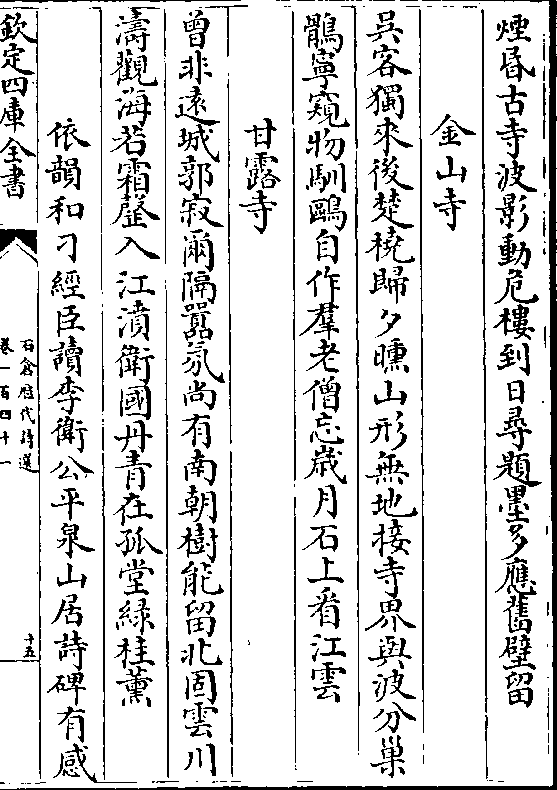 煙昏古寺波影動危樓到日尋題墨多應舊壁留
金山寺
吳客獨來後楚橈歸夕曛山形無地接寺界與波分巢
鶻寧窺物馴鷗自作羣老僧忘歲月石上看江雲
甘露寺
曾非遠城郭寂爾隔囂氛尚有南朝樹能留北固雲川
濤觀海若霜磬入江濆衛國丹青在孤堂綠桂薰
依韻和刁經臣讀李衛公平泉山居詩碑有感
欽定四庫全書
石倉歷代詩選
卷一百四十一
十五